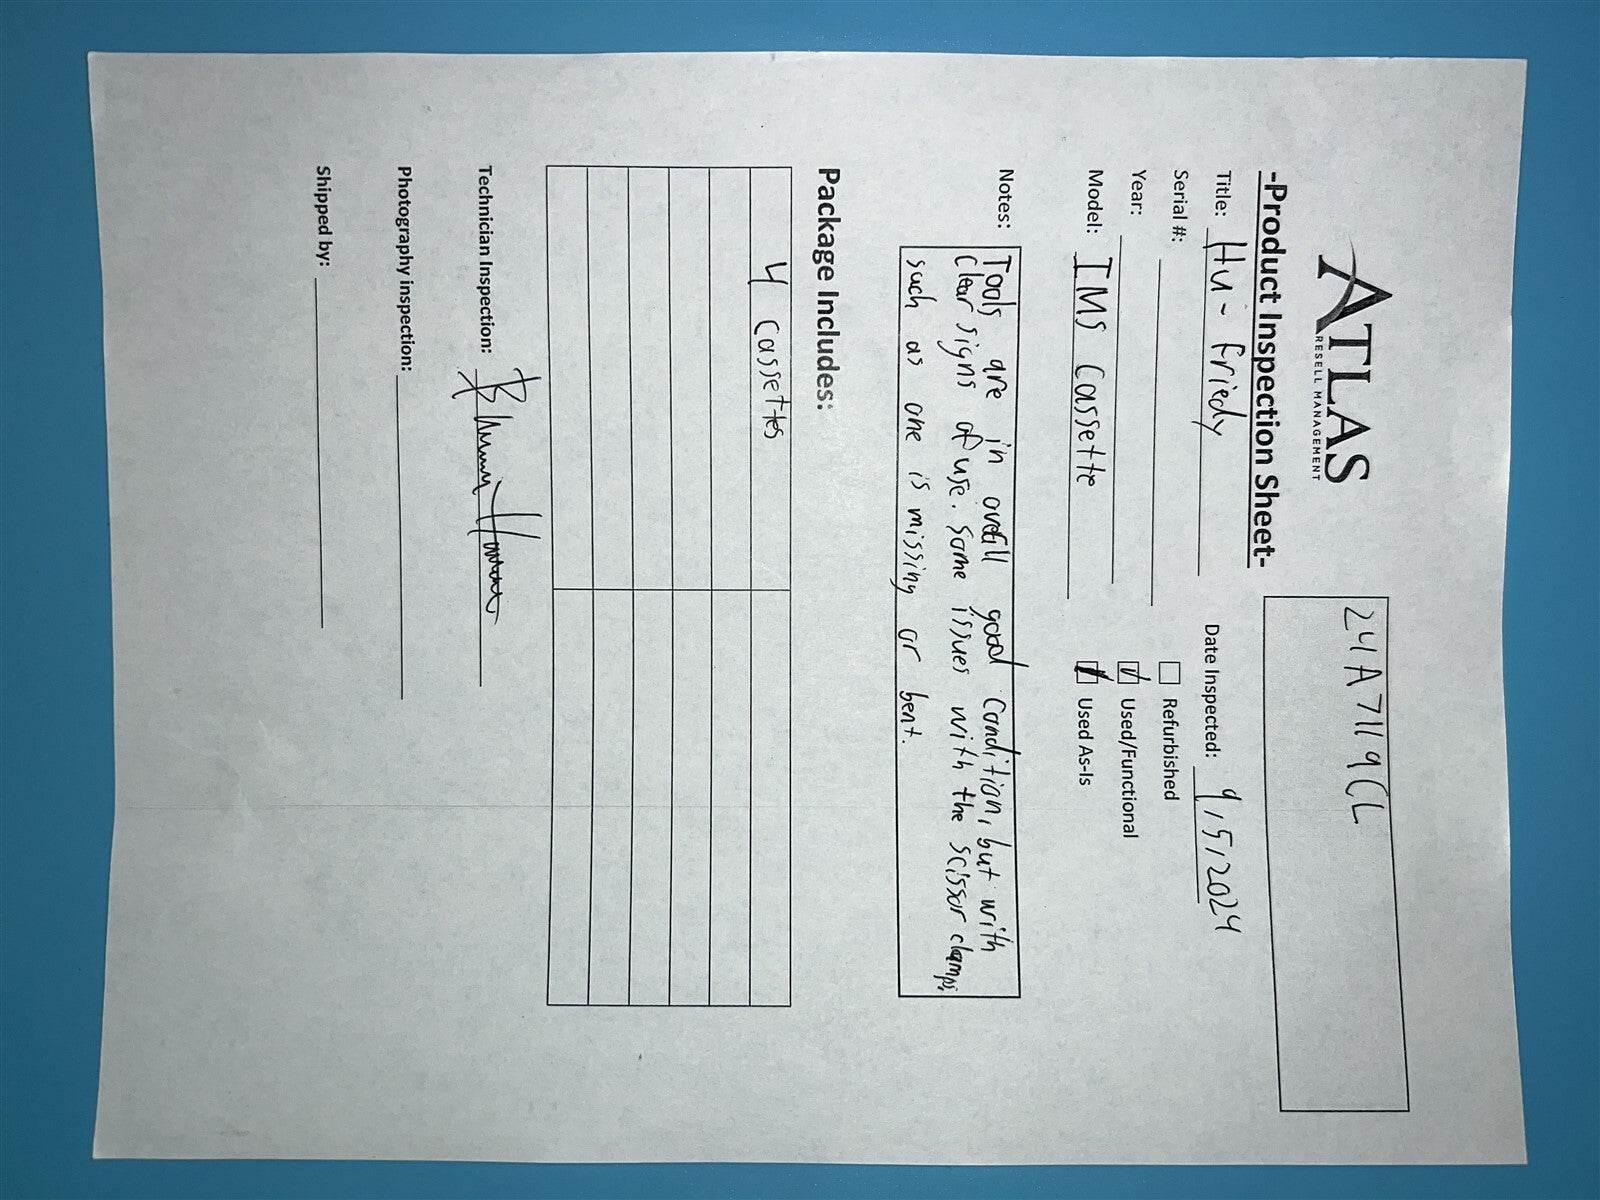 ATLAS
RESELL MANAGEMENT
24A71119CL
-Product Inspection Sheet-
Title: Hu-Friedy
Date Inspected: 9/5/2024
Serial #:
Refurbished
Year:
Used/Functional
Model: IMS Cassette
Used As-Is
Notes: Tools are in overall good condition, but with
clear signs of use. Some issues with the scissor clamps
such as one is missing or bent.
Package Includes:
4 Cassettes
Technician Inspection:
Photography inspection:
Shipped by: